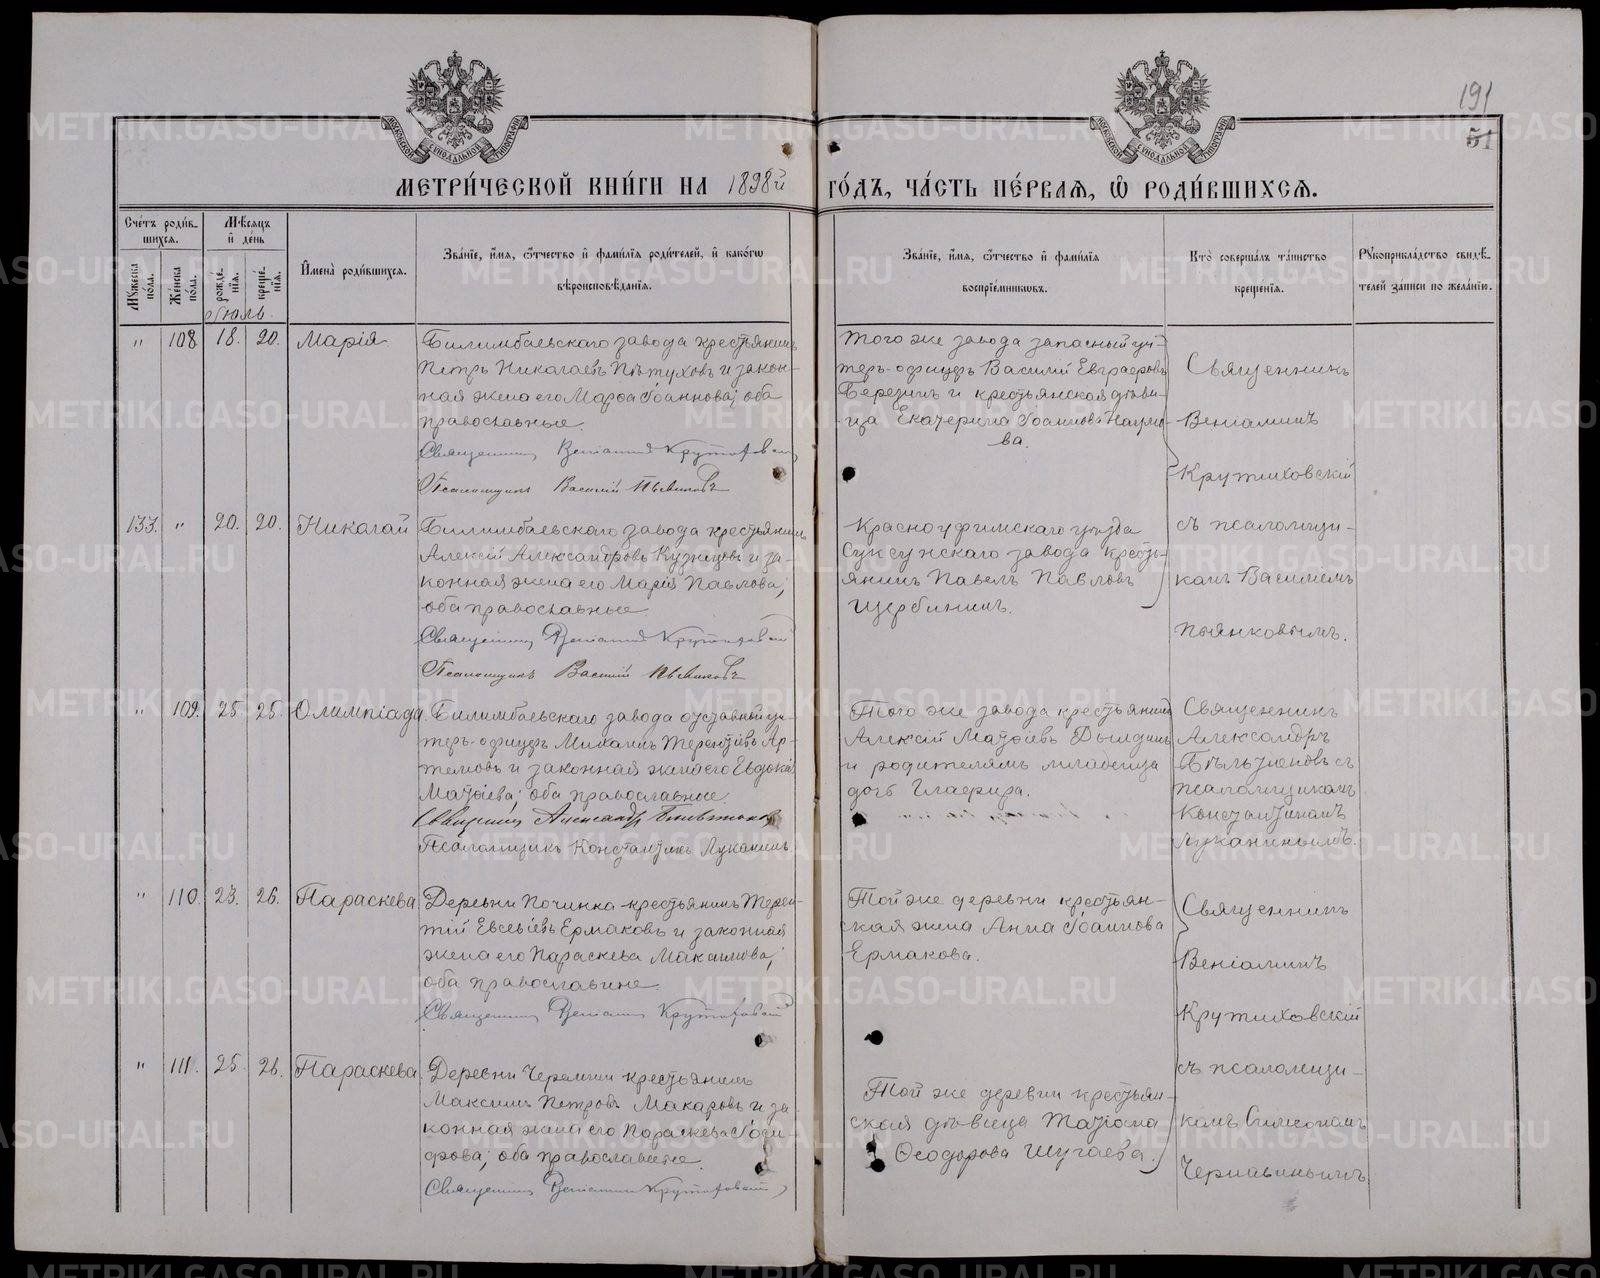 191
51
МЕТРИ́ЧЕСКОЙ КНИ́ГИ НА 1898й
ГО́ДЪ, ЧА́СТЬ ПЕ́РВАЯ, Ѿ РОДИ́ВШИХСЯ.
Сче́тъ роди́в-
шихся.
Му́жеска по́ла.
Же́нска по́ла.
Мѣ́сяцъ
и҆ де́нь
рожде́нїя.
креще́нїя.
И҆мена̀ роди́вшихся.
Зва́нїе, и҆́мя, ѻ҆́тчество и҆ фами́лїя роди́телей, и҆ како́гѡ
вѣроисповѣ́данїя.
Зва́нїе, и҆́мя, ѻ҆́тчество и҆ фами́лїя
воспрїе́мниковъ.
Кто̀ соверша́лъ та́инство
креще́нїя.
Рукоприкла́дство свидѣ́-
телей за́писи по жела́нїю.
Июль.
" 108 18. 20. Марія
Билимбаевскаго завода крестьянинъ
Петръ Николаевъ Пѣтуховъ и закон-
ная жена его Марфа Іоаннова; оба
православные.
Священникъ Веніаминъ Крутиховскій
Псаломщикъ Василій Пьянковъ
Того же завода запасный ун-
теръ-офицеръ Василій Евграфовъ
Березинъ и крестьянская дѣви-
ца Екатерина Іоаннова Наумо-
ва.
Священникъ
Веніаминъ
Крутиховскій
съ псаломщи-
комъ Василіемъ
Пьянковымъ.
133. " 20. 20. Николай
Билимбаевскаго завода крестьянинъ
Алексій Александровъ Кузнецовъ и за-
конная жена его Марія Павлова;
оба православные.
Священникъ Веніаминъ Крутиховскій
Псаломщикъ Василій Пьянковъ
Красноуфимскаго уѣзда
Суксунскаго завода кресть-
янинъ Павелъ Павловъ
Щербининъ.
" 109. 25. 25. Олимпіада
Билимбаевскаго завода отставный ун-
теръ-офицеръ Михаилъ Терентіевъ Ар-
темовъ и законная жена его Евдокія
Матфіева; оба православные.
Священникъ Александръ Бѣльтюковъ
Псаломщикъ Константинъ Луканинъ
Того же завода крестьянинъ
Алексій Матфіевъ Дылдинъ
и родителямъ младенца
дочь Глафира.
Священникъ
Александръ
Бѣльтюковъ съ
псаломщикомъ
Константиномъ
Луканинымъ.
" 110. 23. 26. Параскева
Деревни Починка крестьянинъ Терен-
тій Евсевіевъ Ермаковъ и законная
жена его Параскева Максимова;
оба православные.
Священникъ Веніаминъ Крутиховскій
Той же деревни крестьян-
ская жена Анна Іоаннова
Ермакова.
Священникъ
Веніаминъ
Крутиховскій
съ псаломщи-
комъ Симеономъ
Чернавинымъ.
" 111. 25. 26. Параскева
Деревни Черемши крестьянинъ
Максимъ Петровъ Макаровъ и за-
конная жена его Параскева
оба православные.
Священникъ Веніаминъ Крутиховскій
Той же деревни крестьян-
ская дѣвица Татіана
Ѳеодорова Шугаева.